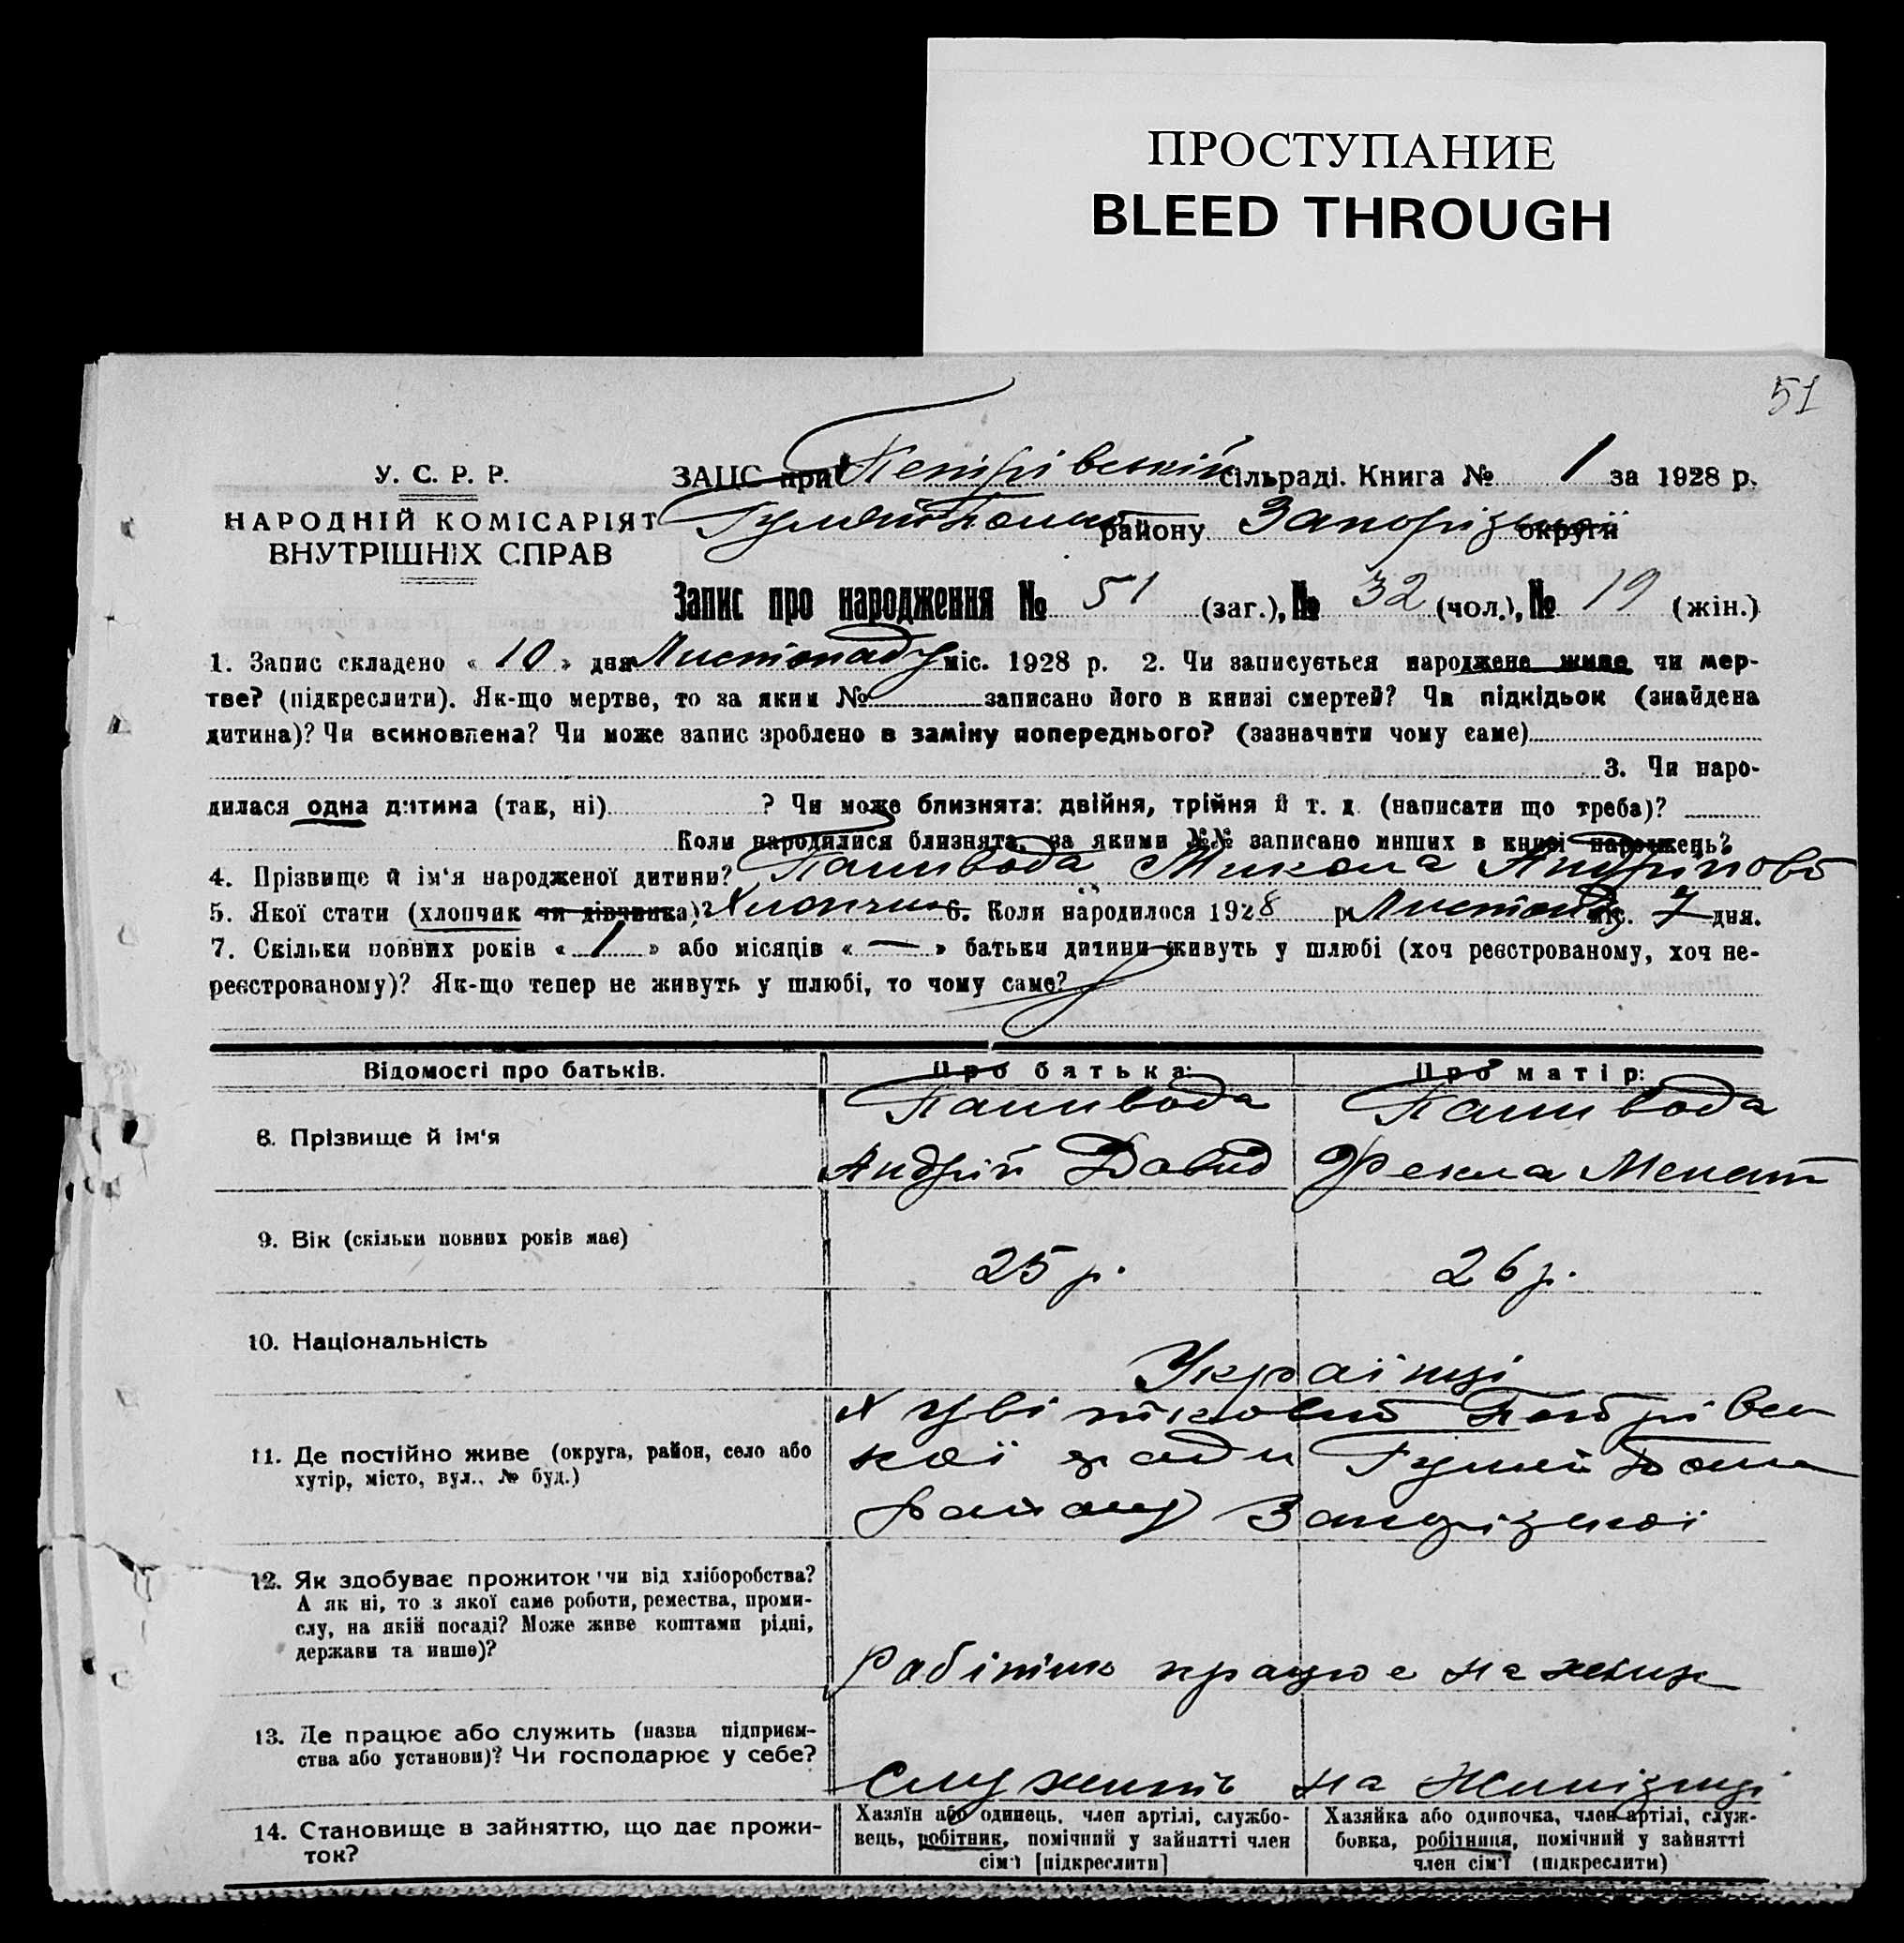 ПРОСТУПАНИЕ
BLEED THROUGH
51
У. С. Р. Р.
НАРОДНІЙ КОМІСАРІЯТ
ВНУТРІШНІХ СПРАВ
ЗАЦС при Петрівській сільраді. Книга № 1 за 1928 р.
району Запорізької округи
Запис про народження № 51 (заг.), № 32 (чол.), № 19 (жін.)
1. Запис складено « 10 » дня Листопаду міс. 1928 р. 2. Чи записується народжене живе чи мер-
тве? (підкреслити). Як-що мертве, то за яким № записано його в книзі смертей? Чи підкідьок (знайдена
дитина)? Чи всиновлена? Чи може запис зроблено в заміну попереднього? (зазначити чому саме)
3. Чи наро-
дилася одна дитина (так, ні) ? Чи може близнята: двійня, трійня й т. д. (написати що треба)?
Коли народилися близнята, за якими №№ записано инших в книзі народжень?
4. Прізвище й ім'я народженої дитини? Паливода Микола Андріїово
5. Якої стати (хлопчик чи дівчинка)? Хлопчик 6. Коли народилося 1928 р. Листопад міс. 7 дня.
7. Скільки повних років « 1 » або місяців « — » батьки дитини живуть у шлюбі (хоч реєстрованому, хоч не-
реєстрованому)? Як-що тепер не живуть у шлюбі, то чому саме?
Відомості про батьків.
Про батька:
Про матір:
8. Прізвище й ім'я
Паливода
Андрій Давид
Паливода
Фекла Мекит
9. Вік (скільки повних років має)
25 р.
26 р.
10. Національність
Українці
11. Де постійно живе (округа, район, село або
хутір, місто, вул., № буд.)
кої ради
району Запорізької
12. Як здобуває прожиток чи від хліборобства?
А як ні, то з якої саме роботи, ремества, проми-
слу, на якій посаді? Може живе коштами рідні,
держави та инше)?
Робітник працює на
13. Де працює або служить (назва підприєм-
ства або установи)? Чи господарює у себе?
Служить на
14. Становище в зайняттю, що дає прожи-
ток?
Хазяїн або одинець, член артілі, службо-
вець, робітник, помічний у зайнятті член
сім'ї [підкреслити]
Хазяйка або одиночка, член артілі, служ-
бовка, робітниця, помічний у зайнятті
член сім'ї (підкреслити)